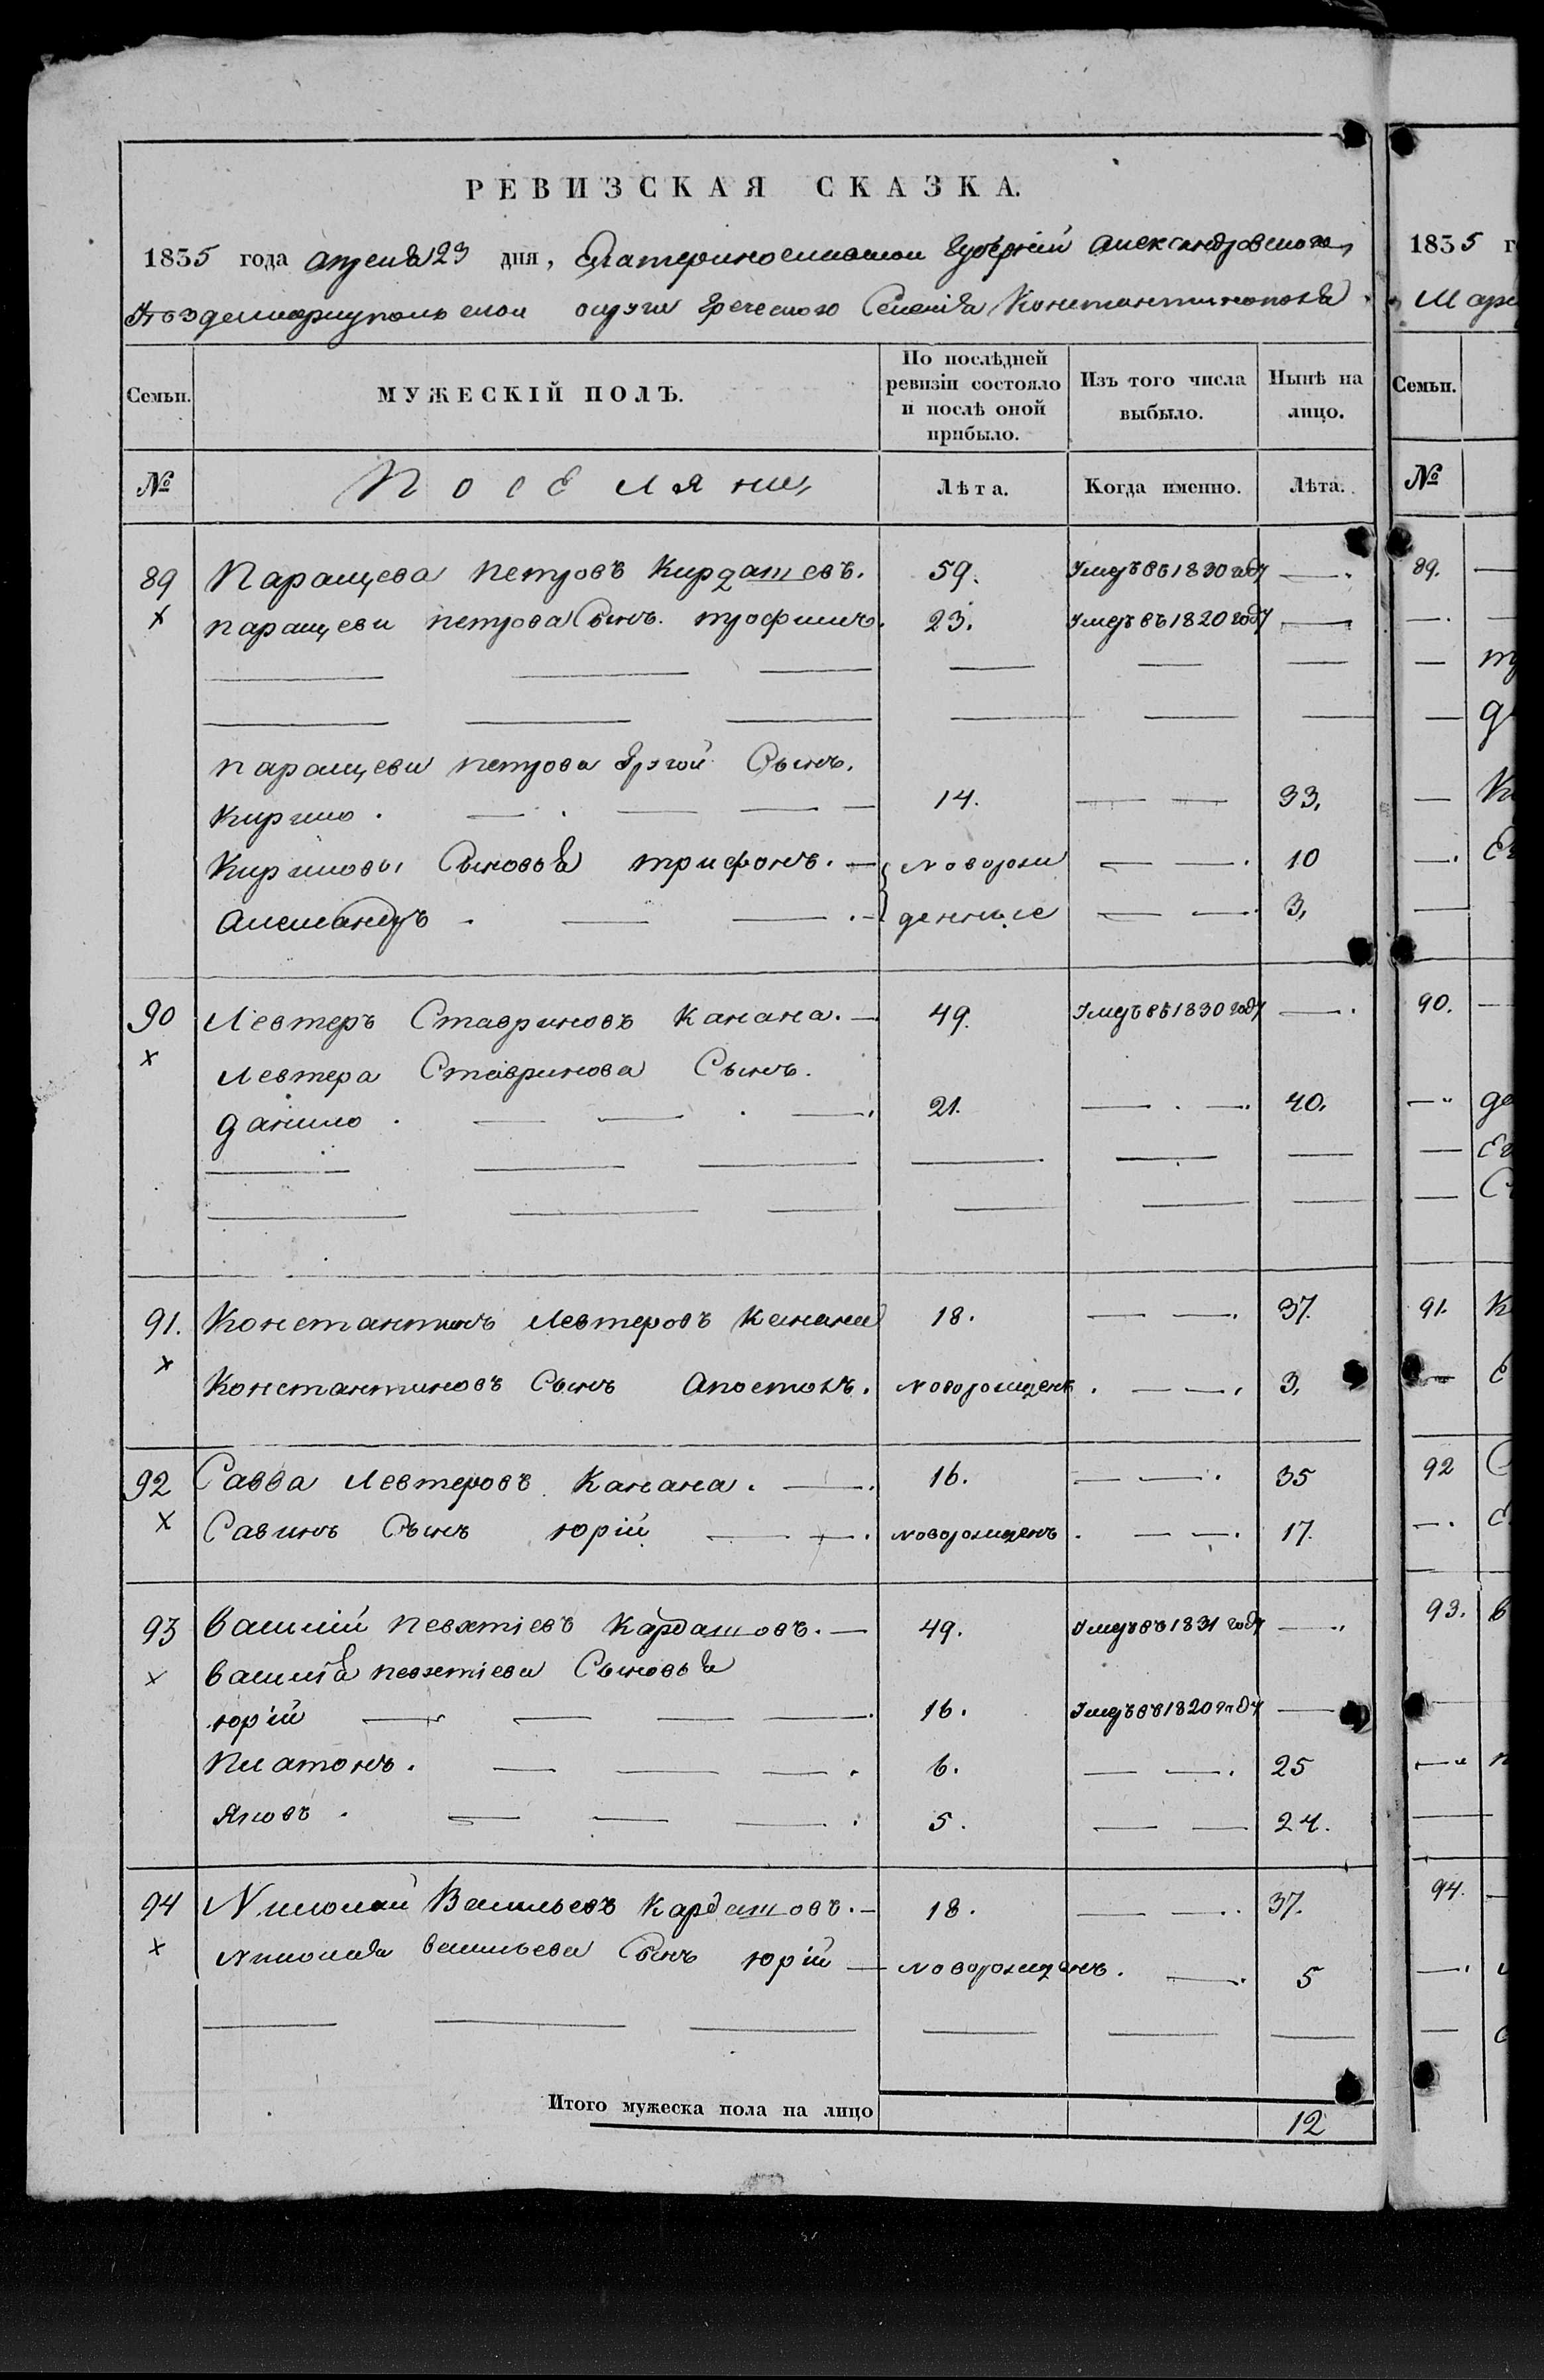 РЕВИЗСКАЯ СКАЗКА.
1835 года апреля 23 дня, Екатеринославской Губернии Александровского
Уезда мариупольской округи Греческого Селения Константинополя
Семьи. МУЖЕСКІЙ ПОЛЪ. По послѣдней ревизіи состояло и послѣ оной прибыло. Изъ того числа выбыло. Нынѣ на лицо.
№ Поселяни Лѣта. Когда именно. Лѣта.
89 Паращева Петровъ Кирдашевъ. 59. Умеръ въ 1830 году —
х паращеви петрова Сынъ трофимъ. 23. Умеръ въ 1820 году —
паращеви петрова другой Сынъ.
Кирило. 14. — 33.
Кириловы Сыновья трифонъ. — новорож — 10
Александръ. — денные — 3.
90 Левтеръ Ставриновъ Канана. — 49. Умеръ въ 1830 году —
х Левтера Ставринова Сынъ.
данило. 21. — 40.
91. Константинъ Левтеровъ Канана 18. — 37.
х Константиновъ Сынъ Апостолъ. новорожденъ. — 3.
92 Савва Левтеровъ Канана. — 16. — 35
х Савинъ Сынъ юрій — новорожденъ. — 17.
93 василій певхтіевъ Кардашовъ. — 49. Умеръ въ 1831 году —
х василія певхтіева Сыновья
юрій — 16. Умеръ въ 1820 году —
Платонъ. — 6. — 25
Яковъ. — 5. — 24.
94 Николай Васильевъ Кардашовъ. — 18. — 37.
х Николая васильева Сынъ юрій — новорожденъ. — 5
Итого мужеска пола на лицо 12
1835 г
Мари
Семьи.
№
89.
90.
91.
92
93.
94.